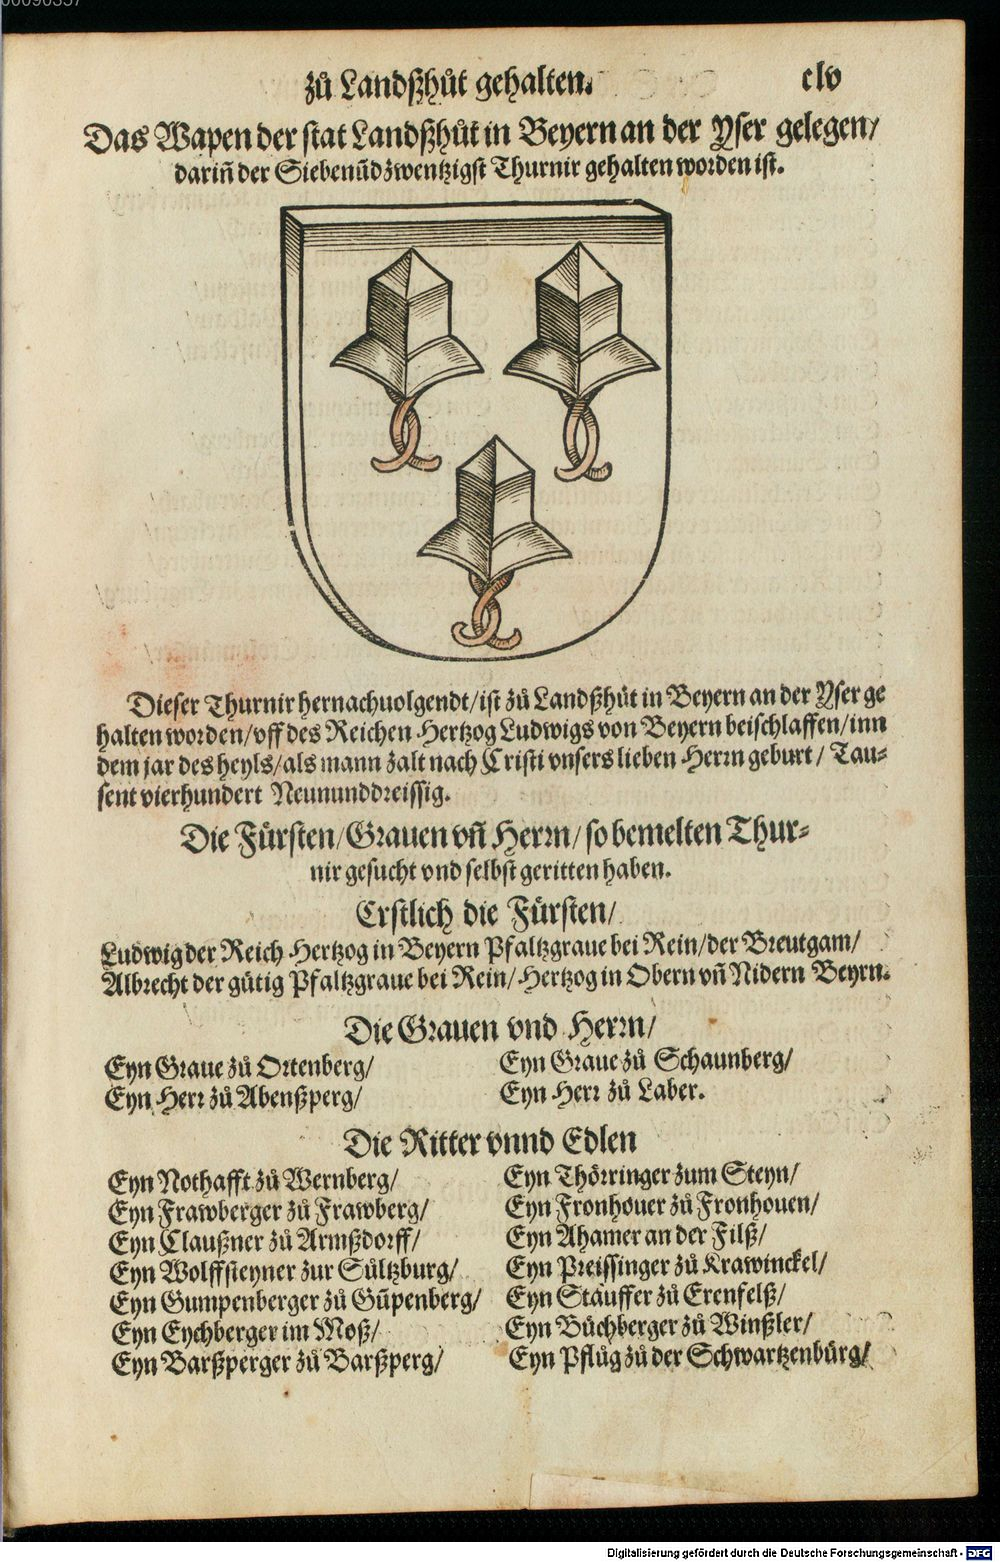 zů Landßhůt gehalten.
clv
Das Wapen der stat Landßhůt in Beyern an der Yser gelegen/
dariñ der Siebenũdzwentzigst Thurnir gehalten worden ist.
Dieser Thurnir hernachuolgendt/ist zů Landßhůt in Beyern an der Yser ge
halten worden/vff des Reichen Hertzog Ludwigs von Beyern beischlaffen/inn
dem jar des heyls/als mann zalt nach Cristi vnsers lieben Herrn geburt/ Tau-
sent vierhundert Neununddreissig.
Die Fürsten/Grauen vñ Herrn/so bemelten Thur-
nir gesucht vnd selbst geritten haben.
Erstlich die Fürsten/
Ludwig der Reich Hertzog in Beyern Pfaltzgraue bei Rein/der Breutgam/
Albrecht der gütig Pfaltzgraue bei Rein/Hertzog in Obern vñ Nidern Beyrn.
Die Grauen vnd Herrn/
Eyn Graue zů Ortenberg/
Eyn Herr zů Abenßperg/
Eyn Graue zů Schaunberg/
Eyn Herr zů Laber.
Die Ritter vnnd Edlen
Eyn Nothafft zů Wernberg/
Eyn Frawberger zů Frawberg/
Eyn Claußner zů Armßdorff/
Eyn Wolffsteyner zur Sültzburg/
Eyn Gumpenberger zů Gũpenberg/
Eyn Eychberger im Moß/
Eyn Barßperger zů Barßperg/
Eyn Thörringer zum Steyn/
Eyn Fronhouer zů Fronhouen/
Eyn Ahamer an der Filß/
Eyn Preissinger zů Krawinckel/
Eyn Stauffer zů Erenfelß/
Eyn Bůchberger zů Winßler/
Eyn Pflůg zů der Schwartzenbůrg/
Digitalisierung gefördert durch die Deutsche Forschungsgemeinschaft - DFG